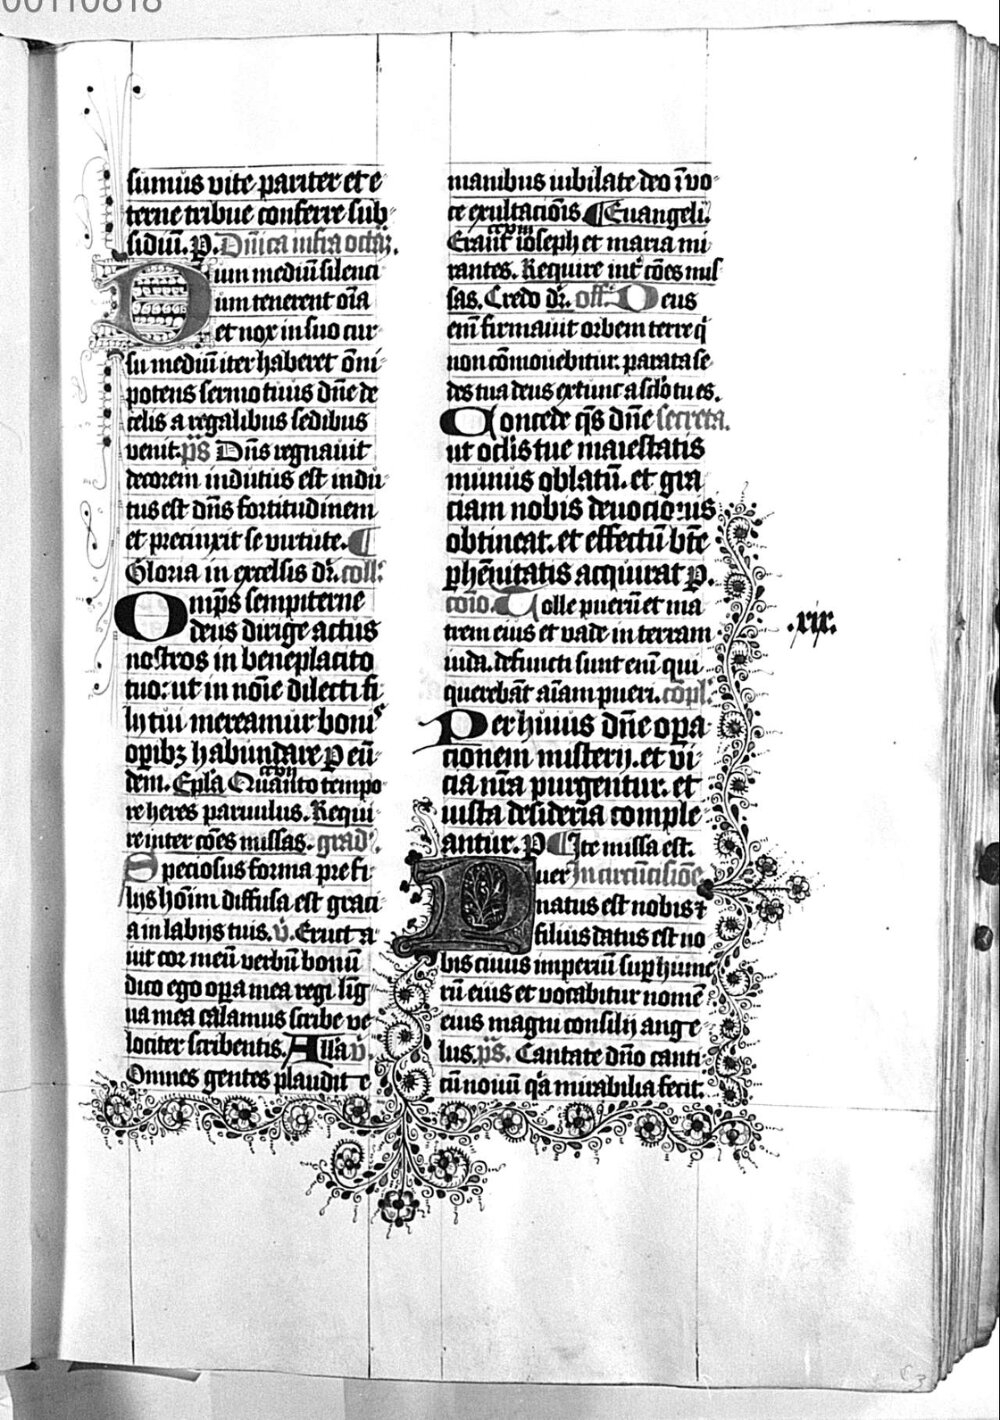 00110818
sumus vite pariter et e
terne tribue conferre sub
sidiū. P. Dn̄ica infra octaꝫ.
Dum mediū silenci
um tenerent oīa
et nox in suo cur
su mediū iter haberet ōni
potens sermo tuus dn̄e de
celis a regalibus sedibus
venit. p̄s Dn̄s regnauit
decorem indutus est indu
tus est dn̄s fortitudinem
et precinxit se virtute.
Gloria in excelsis dr̄. coll:
Omp̄s sempiterne
deus dirige actus
nostros in beneplacito
tuo: ut in nōie dilecti fi
lij tui mereamur bonis
oꝑibꝫ habundare P eū
dem. Epl̄a Quanto tempo
ccvii
re heres paruulus. Requi
re inter cōes missas. grad̄.
Speciosus forma pre fi
lijs hoīm diffusa est graci
a in labijs tuis. v̄. Eructa
uit cor meū verbū bonū
dico ego oꝑa mea regi līg
ua mea calamus scribe ve
lociter scribentis. All̄a v̄.
Omnes gentes plaudite
manibus iubilate deo ī vo
ce exultaciōis ¶ Euangeli.
ccxviii
Erant ioseph et maria mi
rantes. Require int̄ cōes mis
sas. Credo dr̄. off: Deus
eni firmauit orbem terre q̄
non cōmouebitur. parata se
des tua deus extunc a sc̄lo tu es.
Concede q̄s dn̄e secreta.
ut oc̄lis tue maiestatis
munus oblatū. et gra
ciam nobis deuocionis
obtineat. et effectū bt̄e
ꝑhēnitatis acquirat P.
cōio. Tolle puerū et ma
trem eius et vade in terram
iuda. defuncti sunt enī qui
querebāt aīam pueri. cōpl:
Per huius dn̄e oꝑa
cionem misterij. et vi
cia nr̄a purgentur. et
iusta desideria comple
antur. P ¶ Ite missa est.
Puer In circūcisiōe
natus est nobis ⁊
filius datus est no
bis cuius imperiū suꝑ hume
rū eius et vocabitur nomē
eius magni consilij ange
lus. p̄s. Cantate dn̄o canti
cū nouū q̄a mirabilia fecit.
.xix.